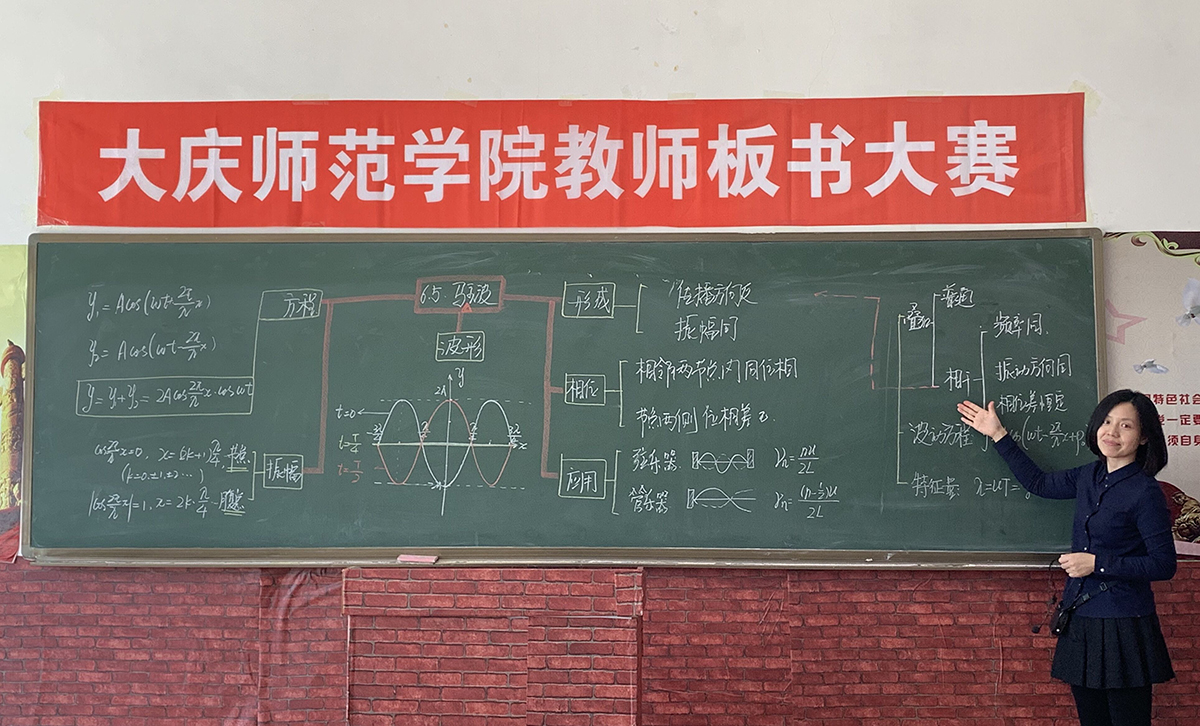 大庆师范学院教师板书大赛
6.5 驻波
方程
y₁=Acos(ωt-2π/λx)
y₂=Acos(ωt-2π/λx)
y=y₁+y₂=2Acos2π/λx·cosωt
振幅
cos2π/λx=0, x=(2k+1)λ/4, 节点
(k=0,±1,±2…)
|cos2π/λx|=1, x=2k·λ/4 腹点
波形
y
2A
t=0
t=T/4
t=T/2
x
形成
传播方向反
振幅同
相位
相邻两节点内同位相
节点两侧位相差π
应用
弦乐器
νₙ=nu/2L
管乐器
νₙ=(n-1/2)u/2L
叠加
相干
频率同
振动方向同
相位差恒定
波动方程
cos(ωt-2π/λx+φ
特征量: λ=uT=
特色社会
一定要
须自身